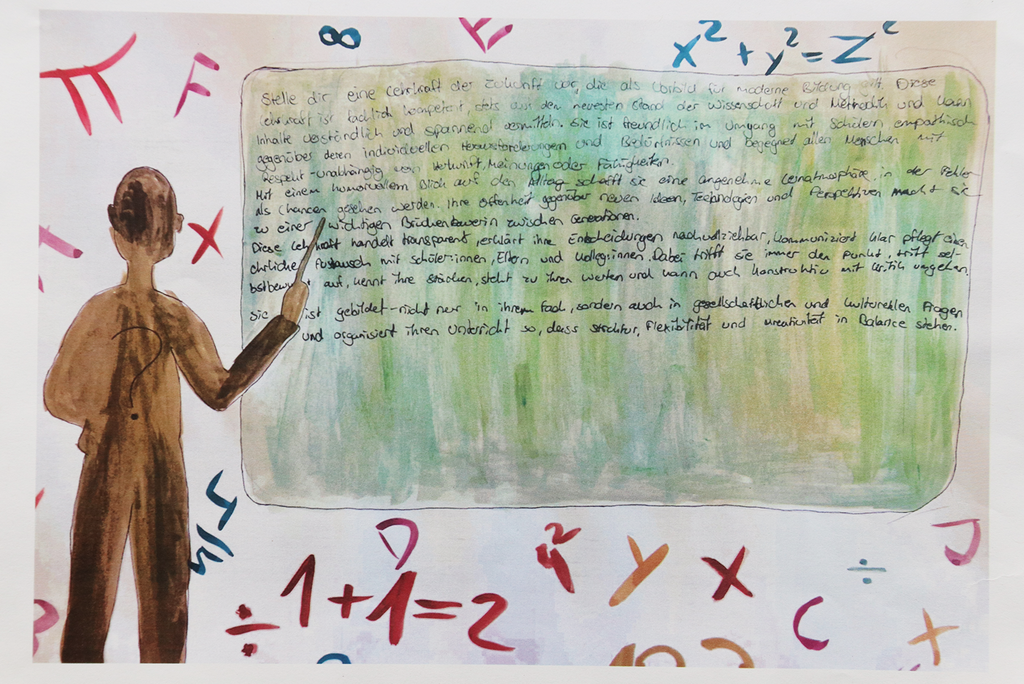 8
F
x² + y² = z²
F
Stelle dir eine Lehrkraft der Zukunft vor, die als Vorbild für moderne Bildung gilt. Diese
Lehrkraft ist fachlich kompetent, stets auf den neuesten Stand der Wissenschaft und Methodik und kann
Inhalte verständlich und spannend vermitteln. Sie ist freundlich im Umgang mit Schülern empathisch
gegenüber deren individuellen Herausforderungen und Bedürfnissen und begegnet allen Menschen mit
Respekt-unabhängig von Herkunft, Meinungen oder Fähigkeiten.
Mit einem humorvollem Blick auf den Alltag schafft sie eine angenehme Lernatmosphäre, in der Fehler
als Chancen gesehen werden. Ihre Offenheit gegenüber neuen Ideen, Technologien und Perspektiven macht sie
zu einer wichtigen Brückenbauerin zwischen Generationen.
Diese Lehrkraft handelt transparent, erklärt ihre Entscheidungen nachvollziehbar, kommuniziert klar pflegt einen
ehrlichen Austausch mit Schüler:innen, Eltern und Kolleg:innen. Dabei trifft sie immer den Punkt, tritt sel-
bstbewusst auf, kennt ihre Stärken, steht zu ihren Werten und kann auch konstruktiv mit Kritik umgehen.
Sie ist gebildet-nicht nur in ihrem Fach, sondern auch in gesellschaftlichen und kulturellen Fragen
und organisiert ihren Unterricht so, dass Struktur, Flexibilität und Kreativität in Balance stehen.
x
?
÷ 1+1=2
y x
÷
J
C
+